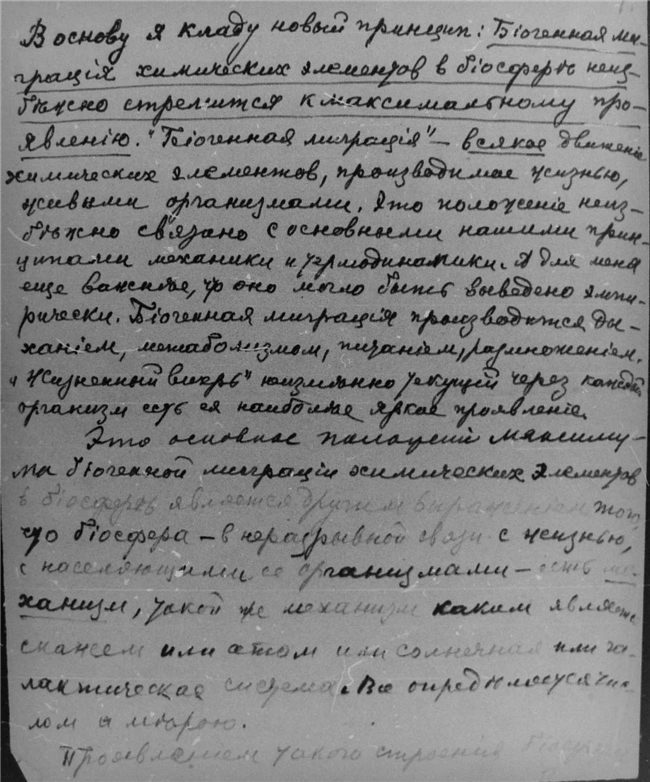 В основу я кладу новый принцип: Біогенная ми-
грація химических элементов в біосферѣ неиз-
бѣжно стремится к максимальному про-
явленію. "Біогенная миграція" – всякое движеніе
химических элементов, производимое жизнью,
живыми организмами. Это положеніе неиз-
бѣжно связано с основными нашими прин-
ципами механики и термодинамики. А для меня
еще важнѣе, что оно могло быть выведено эмпи-
рически. Біогенная миграція производится ды-
ханіем, метаболизмом, питаніем, размноженіем.
"Жизненный вихрь" неизмѣнно текущій через каждый
организм есть ея наиболѣе яркое проявленіе.
Это основное положеніе максиму-
ма біогенной миграціи химических элементов
в біосферѣ является другим выраженіем того,
что біосфера – в неразрывной связи с жизнью,
с населяющими ее организмами – есть ме-
ханизм, такой же механизм каким является
скажем или атом или солнечная или га-
лактическая система. Все опредѣляется чис-
лом и мѣрою.
Проявленіем такого строенія біосферы